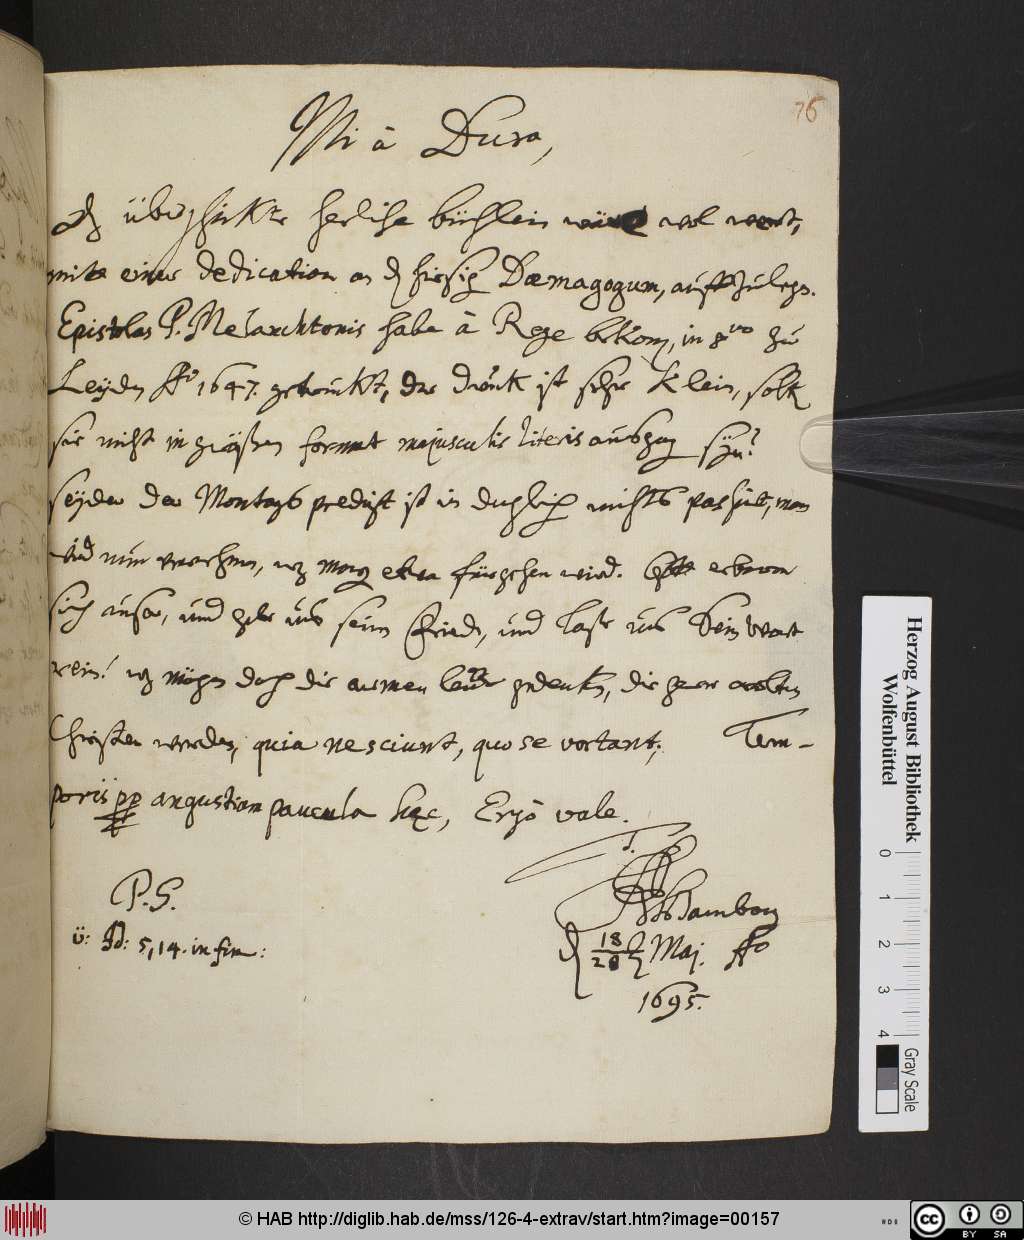 76
Mi à Dura,
überschickte herliche büchlein wäre wol wert,
mitt einer dedication an d hiesig Dæmagogum, aufzulegen.
Epistolas P. Melanchtonis habe à Rege bekom, in 8vo zu
Leyden Ao 1647. getruckt, der druck ist sehr klein, solte
sie nicht in größern format majusculis literis aushzug syn?
seyder der Montags predigt ist in duchlig nichts passirt, man
wird nun vernehmen, was morg etwa fürgehen wird. Gott erbarm
sich unser, und gebe uns seinen Friede, und lasse uns dein wort
rein! wz mögen doch die armen leute gedenken, die gerne wolten
Christen werden, quia nesciunt, quo se vortant; Tem-
poris pp angustiam paucula hæc, Ergo vale.
T.
P.S.
v: Jd: 5,14. in fin:
d 18/28 Maj. Ao
1695.
Herzog August Bibliothek
Wolfenbüttel
0
1
2
3
4
Gray Scale
© HAB http://diglib.hab.de/mss/126-4-extrav/start.htm?image=00157
cc
BY SA